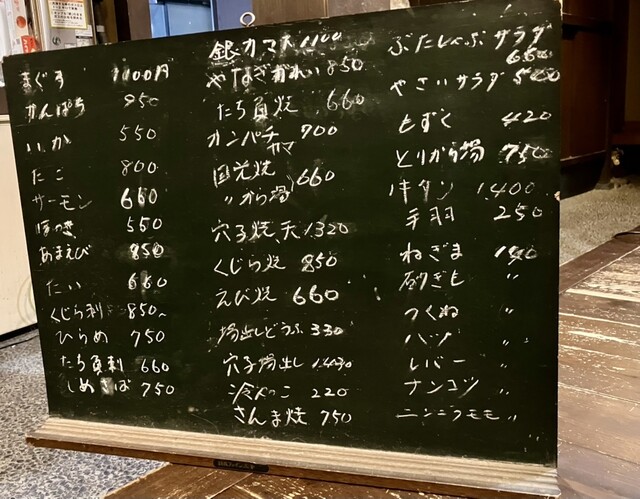 まぐろ 1100円
かんぱち 850
いか 550
たこ 800
サーモン 660
ほっき 550
あまえび 850
たい 660
くじら刺 850〜
ひらめ 750
たち魚刺 660
しめさば 750
銀カマ大 1100
やなぎがれい 850
たち魚焼 660
カンパチカマ 700
目光焼
〃から揚 660
穴子焼、天 1320
くじら焼 850
えび焼 660
揚出しどうふ 330
穴子揚出し
冷やっこ 220
さんま焼 750
ぶたしゃぶサラダ 660
やさいサラダ 500
もずく 420
とりから揚 750
牛タン 1400
手羽 250
ねぎま
砂ぎも 〃
つくね 〃
ハツ 〃
レバー 〃
ナンコツ 〃
ニンニクモモ 〃